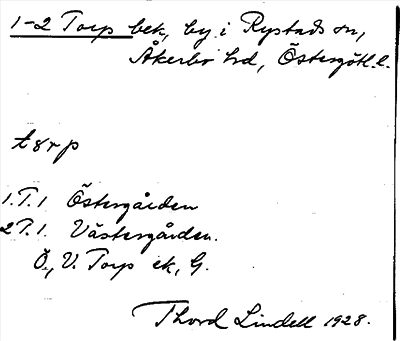 1-2 Torp bek, by i Rystads sn,
Åkerbo hd, Östergötl. l.
tɜrp
1. T. 1 Östergården
2 T. 1. Västergården.
Ö., V. Torp ek, G.
Thord Lindell 1928.